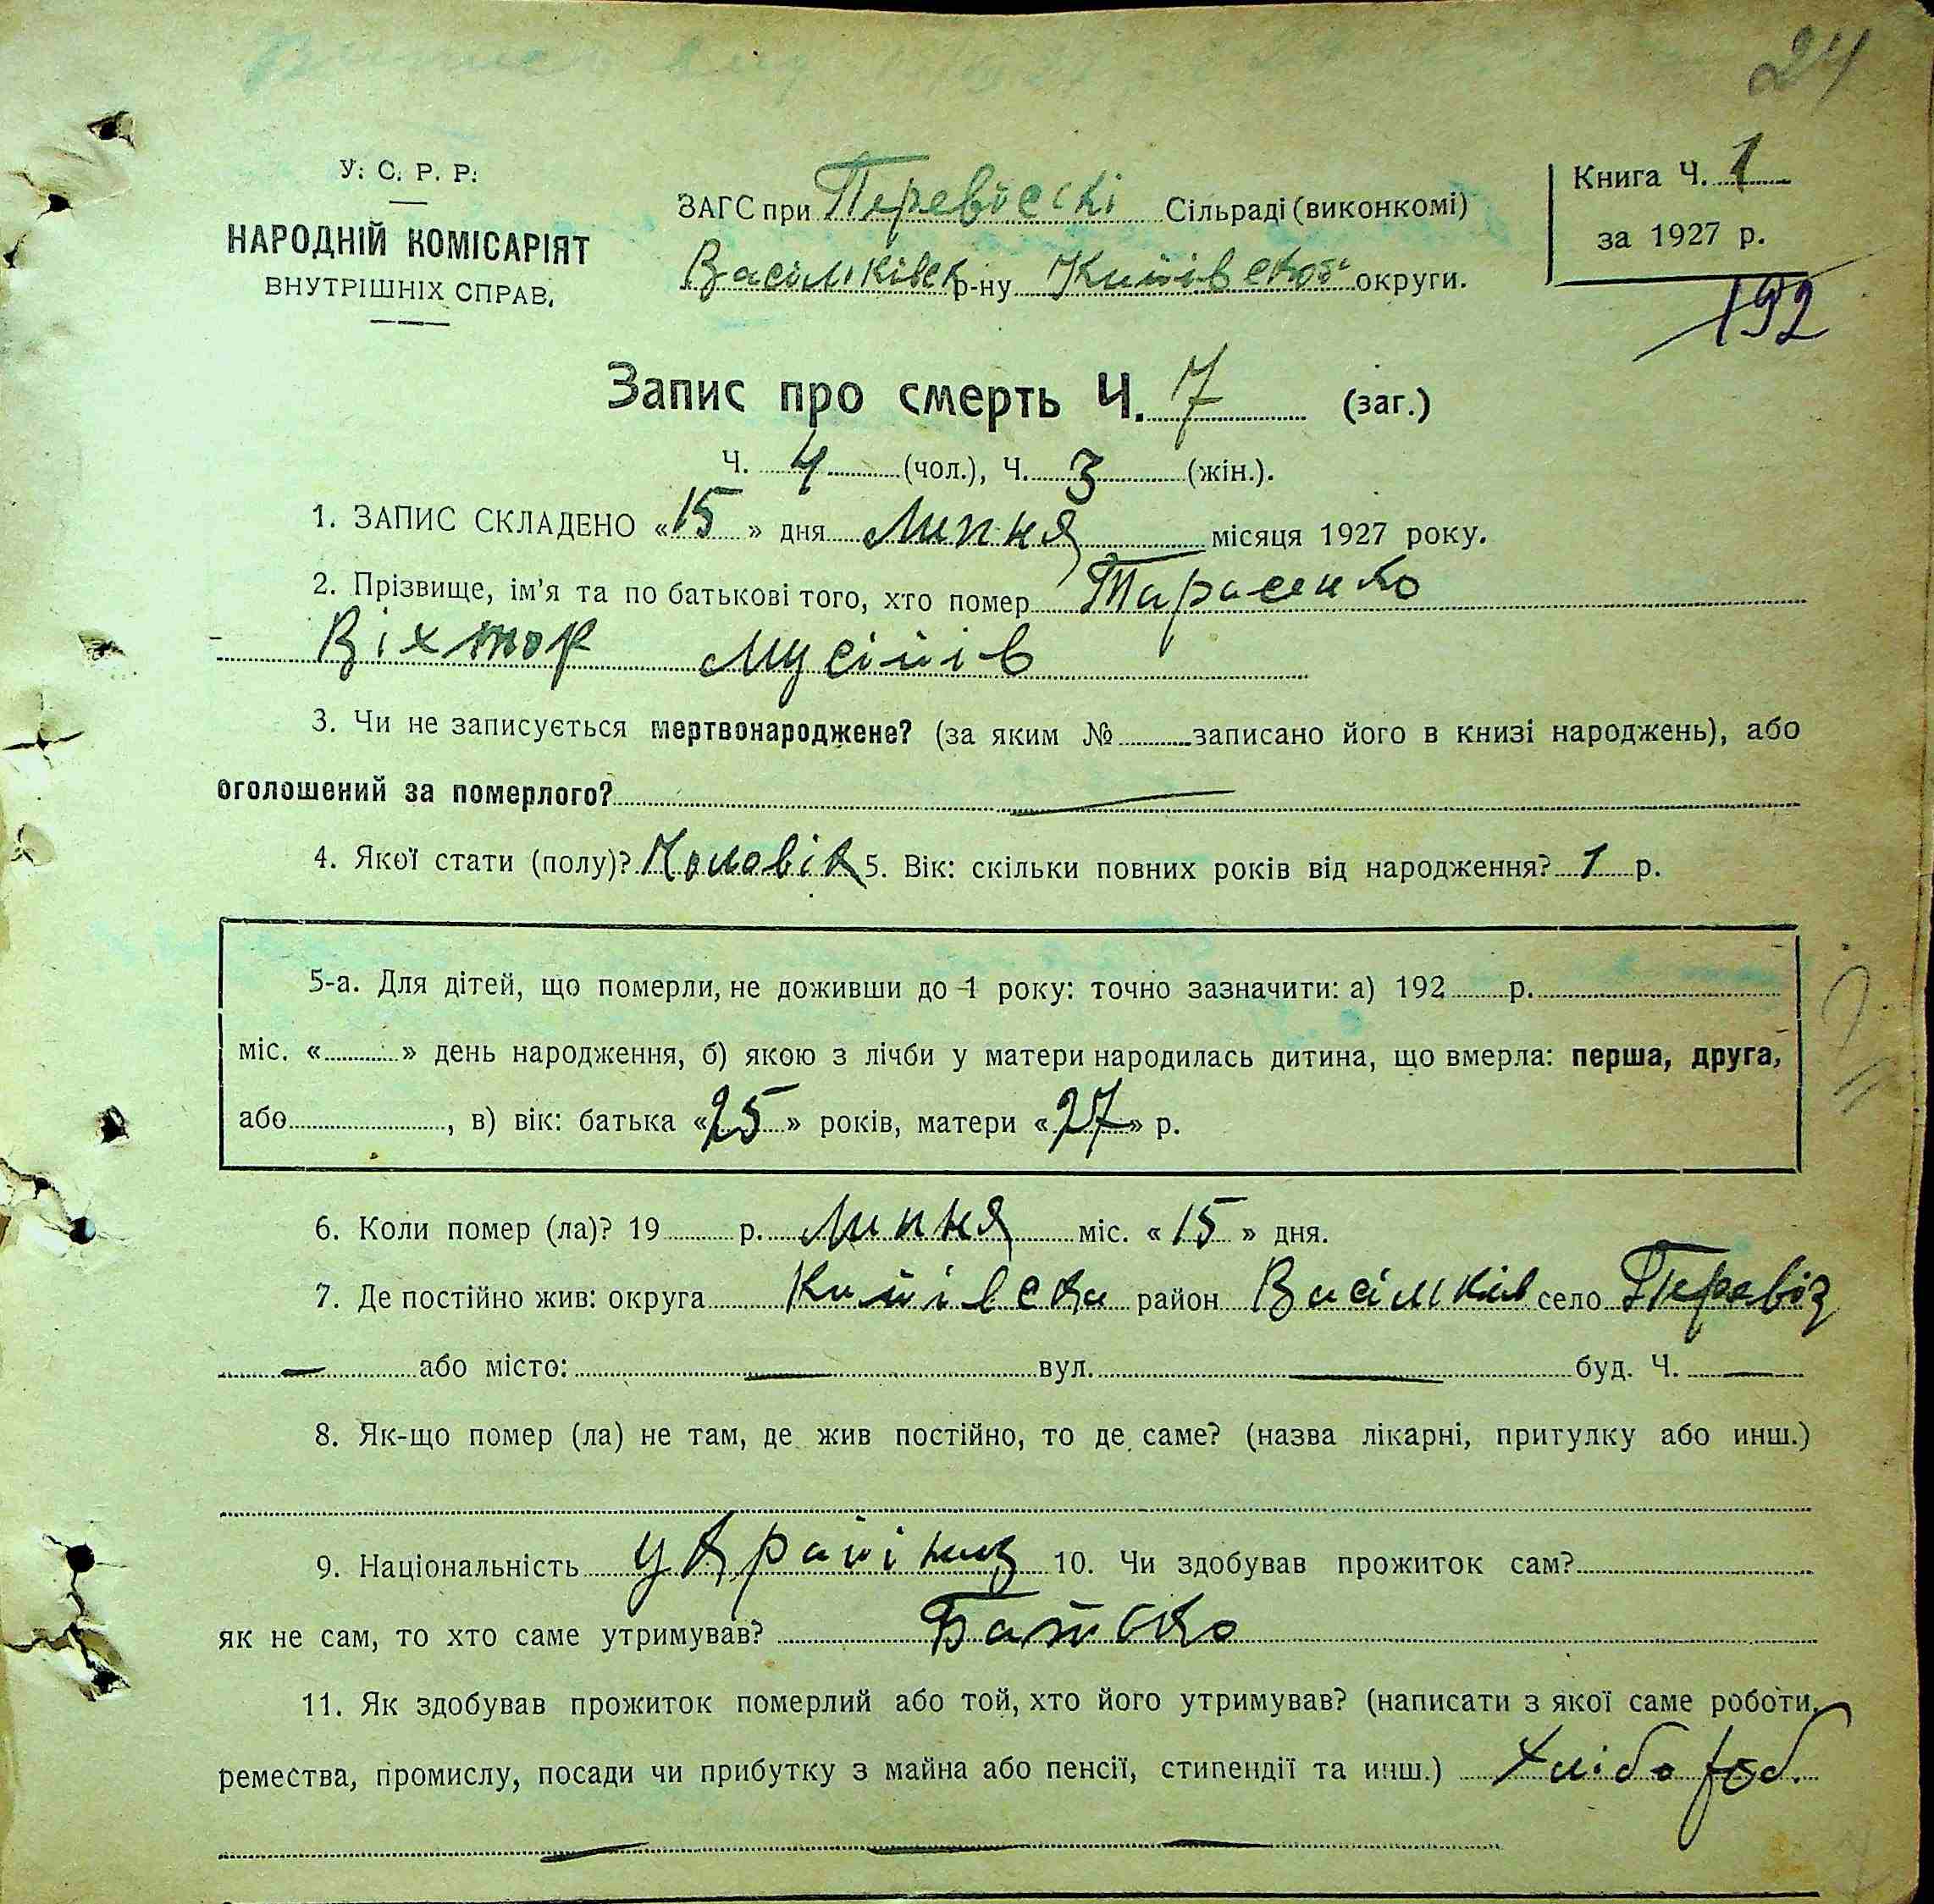 24
У. С. Р. Р.
НАРОДНІЙ КОМІСАРІЯТ
ВНУТРІШНІХ СПРАВ.
ЗАГС при Перевіскі Сільраді (виконкомі)
Васільківськ р-ну Київської округи.
Книга Ч. 1
за 1927 р.
192
Запис про смерть Ч. 7 (заг.)
Ч. 4 (чол.), Ч. 3 (жін.).
1. ЗАПИС СКЛАДЕНО «15» дня Липня місяця 1927 року.
2. Прізвище, ім'я та по батькові того, хто помер Тарасенко
Віхтор Мусіїів
3. Чи не записується мертвонароджене? (за яким № записано його в книзі народжень), або
оголошений за померлого?
4. Якої стати (полу)? Чоловік 5. Вік: скільки повних років від народження? 1 р.
5-а. Для дітей, що померли, не доживши до 1 року: точно зазначити: а) 192 р.
міс. « » день народження, б) якою з лічби у матери народилась дитина, що вмерла: перша, друга,
або , в) вік: батька «25» років, матери «27» р.
6. Коли помер (ла)? 19 р. Липня міс. «15» дня.
7. Де постійно жив: округа Київська район Васільків село Перевіз
— або місто: — вул. — буд. Ч. —
8. Як-що помер (ла) не там, де жив постійно, то де саме? (назва лікарні, притулку або инш.)
9. Національність Україіниц 10. Чи здобував прожиток сам?
як не сам, то хто саме утримував? Батько
11. Як здобував прожиток померлий або той, хто його утримував? (написати з якої саме роботи,
ремества, промислу, посади чи прибутку з майна або пенсії, стипендії та инш.) Хлібороб.